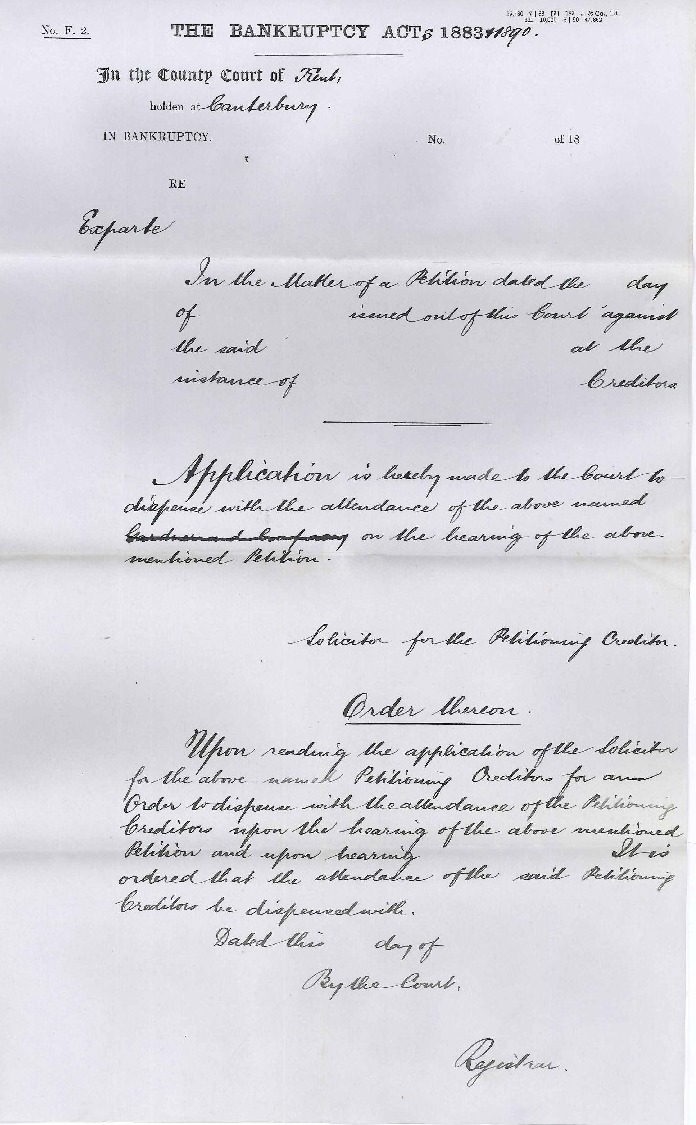 No. F. 2.
THE BANKRUPTCY ACTs 1883 & 1890.
In the County Court of Kent,
holden at Canterbury.
IN BANKRUPTCY. No. of 18
RE
Exparte
In the Matter of a Petition dated the day
of issued out of this Court against
the said at the
instance of Creditors
Application is hereby made to the Court to
dispense with the attendance of the above named
Gardner and Company on the hearing of the above
mentioned Petition.
Solicitor for the Petitioning Creditor.
Order thereon.
Upon reading the application of the Solicitor
for the above named Petitioning Creditors for an
Order to dispense with the attendance of the Petitioning
Creditors upon the hearing of the above mentioned
Petition and upon hearing It is
ordered that the attendance of the said Petitioning
Creditors be dispensed with.
Dated this day of
By the Court.
Registrar.